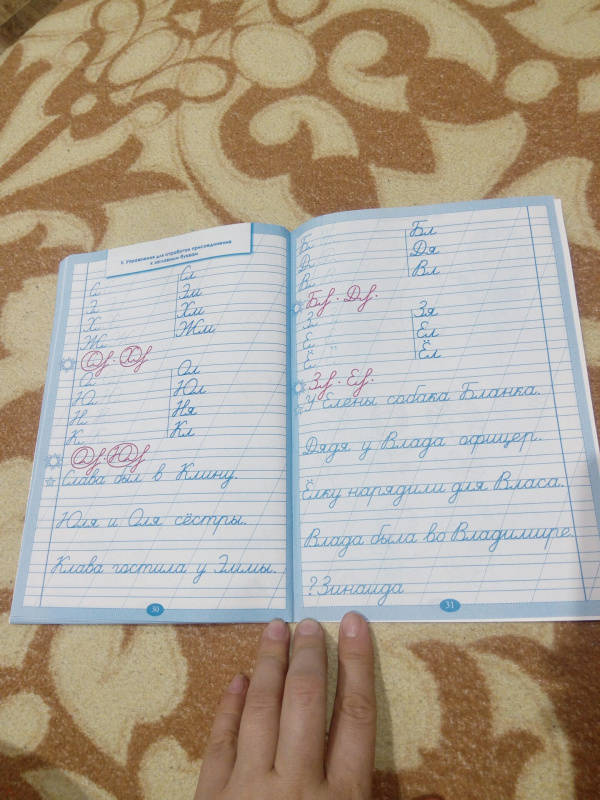 5. Упражнения для отработки присоединения
к заглавным буквам
С Сл
З Эм
Х Хм
Ж Жм
О Ол
Ю Юл
Н Ня
К Кл
Слава был в Клину.
Юля и Оля сёстры.
Клава гостила у Эммы.
30
Б Бл
Д Дя
В Вл
З Зя
Е Ел
Ё Ёл
У Елены собака Бланка.
Дядя у Влада офицер.
Ёлку нарядили для Власа.
Влада была во Владимире.
?Зинаида
31